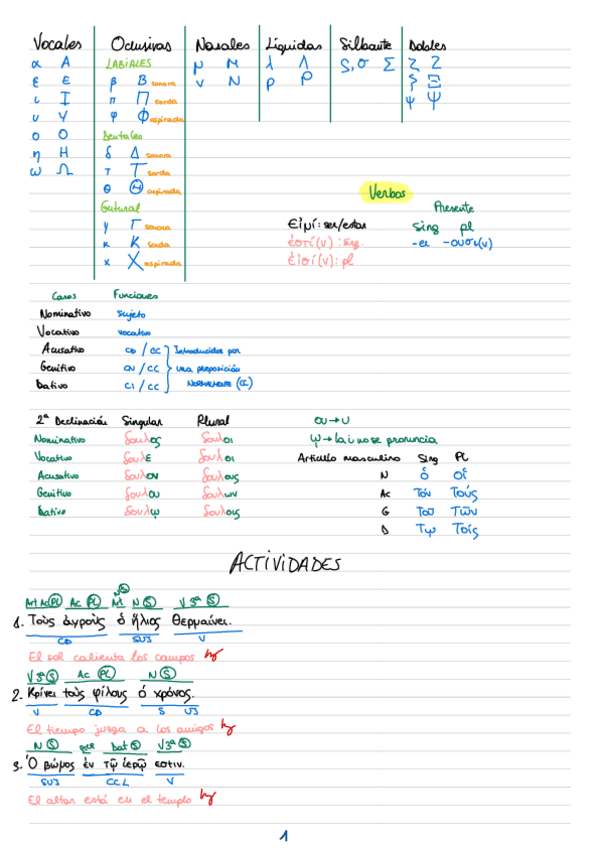 Vocales Oclusivas Nasales Líquidas Silbante Dobles
α Α LABIALES μ Μ λ Λ ς,σ Σ ζ Ζ
ε Ε β Β sonora ν Ν ρ Ρ ξ Ξ
ι Ι π Π sorda ψ Ψ
υ Υ φ Φ aspirada
ο Ο Dentales
η Η δ Δ sonora
ω Ω τ Τ sorda
θ Θ aspirada
Gutural
γ Γ sonora
κ Κ sorda
χ Χ aspirada
Verbos
Presente
Εἰμί: ser/estar sing pl
ἐστί(ν) : sing. -ει -ουσι(ν)
ἐἰσί(ν): pl
Casos Funciones
Nominativo Sujeto
Vocativo vocativo
Acusativo CD / CC Introducidos por
Genitivo CN / CC una preposición
Dativo CI / CC NORMALMENTE (CC)
2ª Declinación Singular Plural ου→υ
Nominativo δουλος δουλοι ῳ→la i no se pronuncia
Vocativo δουλε δουλοι Artículo masculino Sing PL
Acusativo δουλον δουλους N ὁ οἱ
Genitivo δουλου δουλων Ac Τόν Τούς
Dativo δουλῳ δουλοις G Τοῦ Τῶν
D Τῳ Τοίς
ACTIVIDADES
Art Ac PL Ac PL Art N S N S V 3ª S
1. Τοὺς ἀγροὺς ὁ ἥλιος θερμαίνει.
CD SUJ V
El sol calienta los campos
V 3ª S Ac PL N S
2. Κρίνει τοὺς φίλους ὁ χρόνος.
V CD SUJ
El tiempo juzga a los amigos
N S pre Dat S V 3ª S
3. Ὁ βώμος ἐν τῷ ἱερῷ εστιν.
SUJ CCL V
El altar está en el templo
1